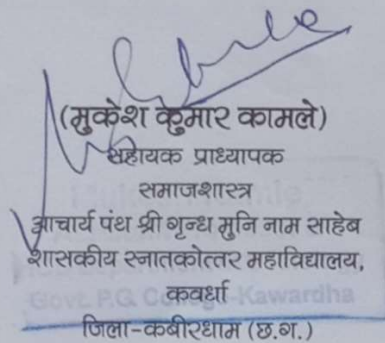 (मुकेश कुमार कामले)
सहायक प्राध्यापक
समाजशास्त्र
आचार्य पंथ श्री गृन्ध मुनि नाम साहेब
शासकीय स्नातकोत्तर महाविद्यालय,
Govt. P.G. College-Kawardha
कवर्धा
जिला-कबीरधाम (छ.ग.)